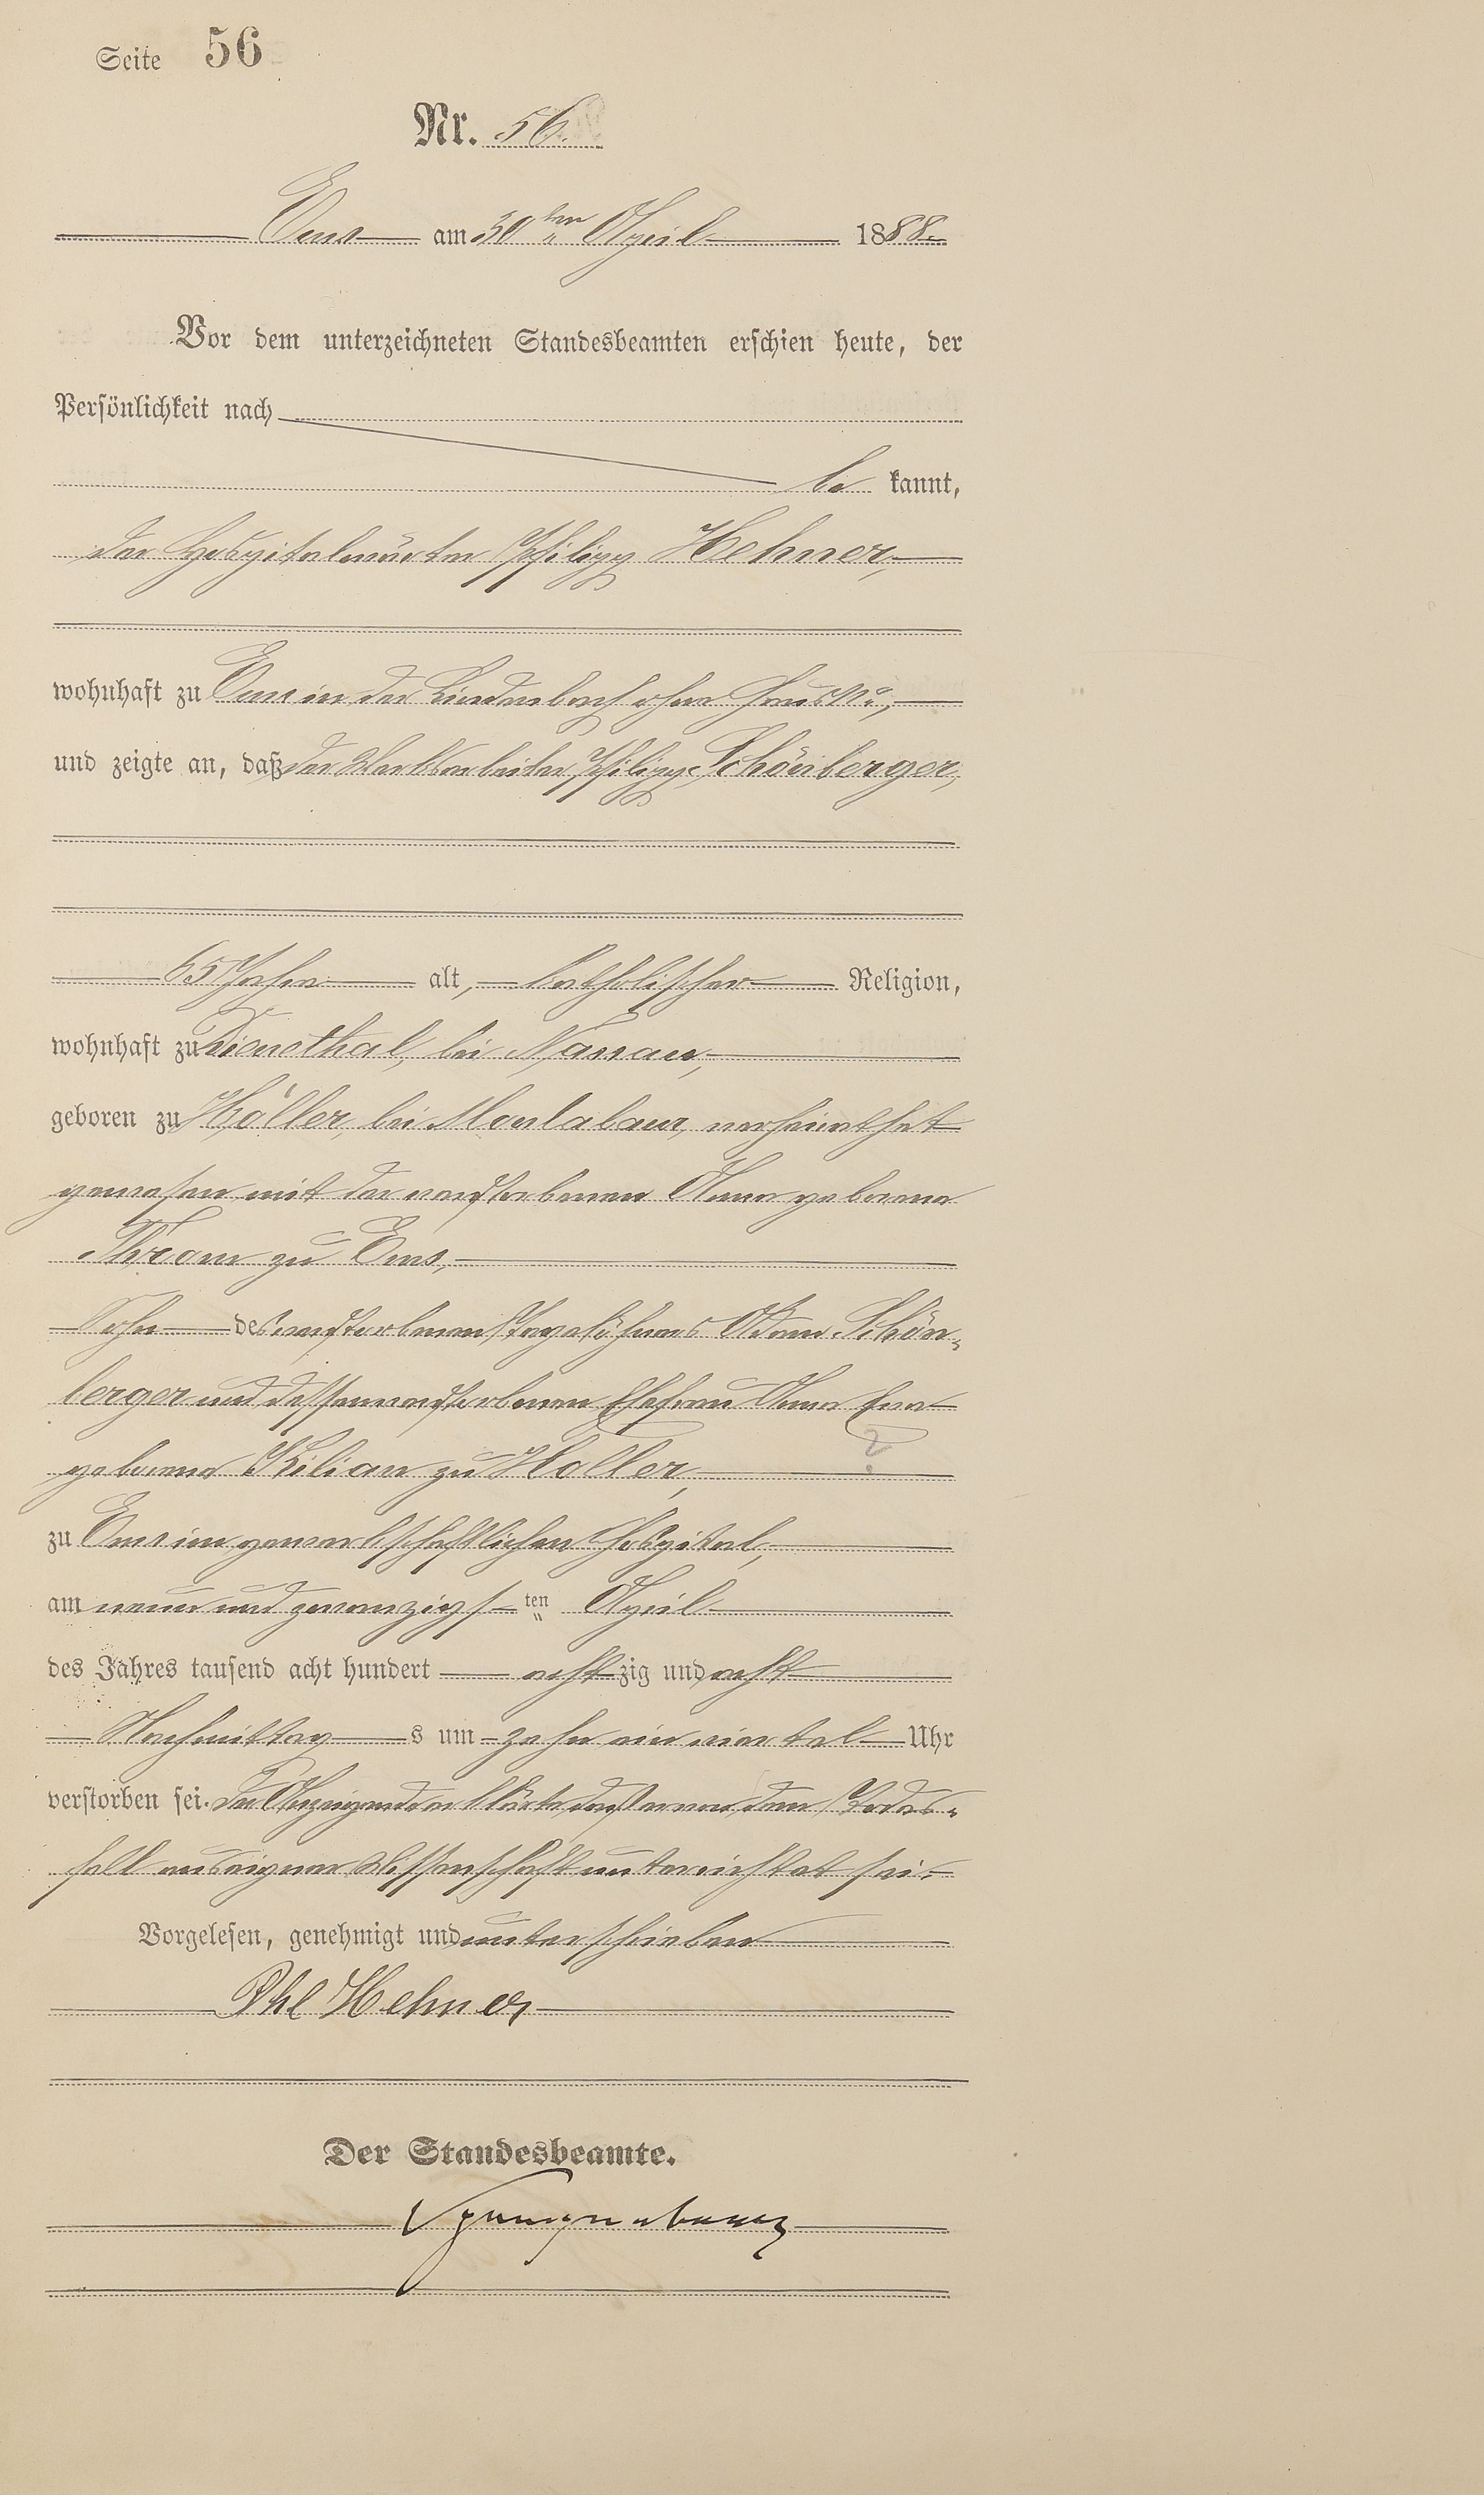 Seite 56
Nr. 56.
Ems am 30ten April 1888.
Vor dem unterzeichneten Standesbeamten erschien heute, der
Persönlichkeit nach
be kannt,
der Hospitalwärter Philipp Hehner,
wohnhaft zu Ems in der Lindenbach ohne Haus No,
und zeigte an, daß der Werksarbeiter Philipp Schönberger,
65 Jahre alt, katholischer Religion,
wohnhaft zu Dienethal, bei Nassau,
geboren zu Holler, bei Montabaur, verheirathet
gewesen mit der verstorbenen Anna geborene
Throm zu Ems,
Sohn des verstorbenen Tagelöhners Adam Schön-
berger und dessen verstorbenen Ehefrau Anna Eva
?
geborene Kilian zu Holler,
zu Ems im gewerkschaftlichen Hospital,
am neun und zwanzigs ten April
des Jahres tausend acht hundert acht zig und acht
Nachmittag s um zehn ein viertel Uhr
verstorben sei. Der Anzeigende erklärte, daß er von dem Todes-
fall aus eigener Wissenschaft unterrichtet sei.
Vorgelesen, genehmigt und unterschrieben
Phl Hehner
Der Standesbeamte.